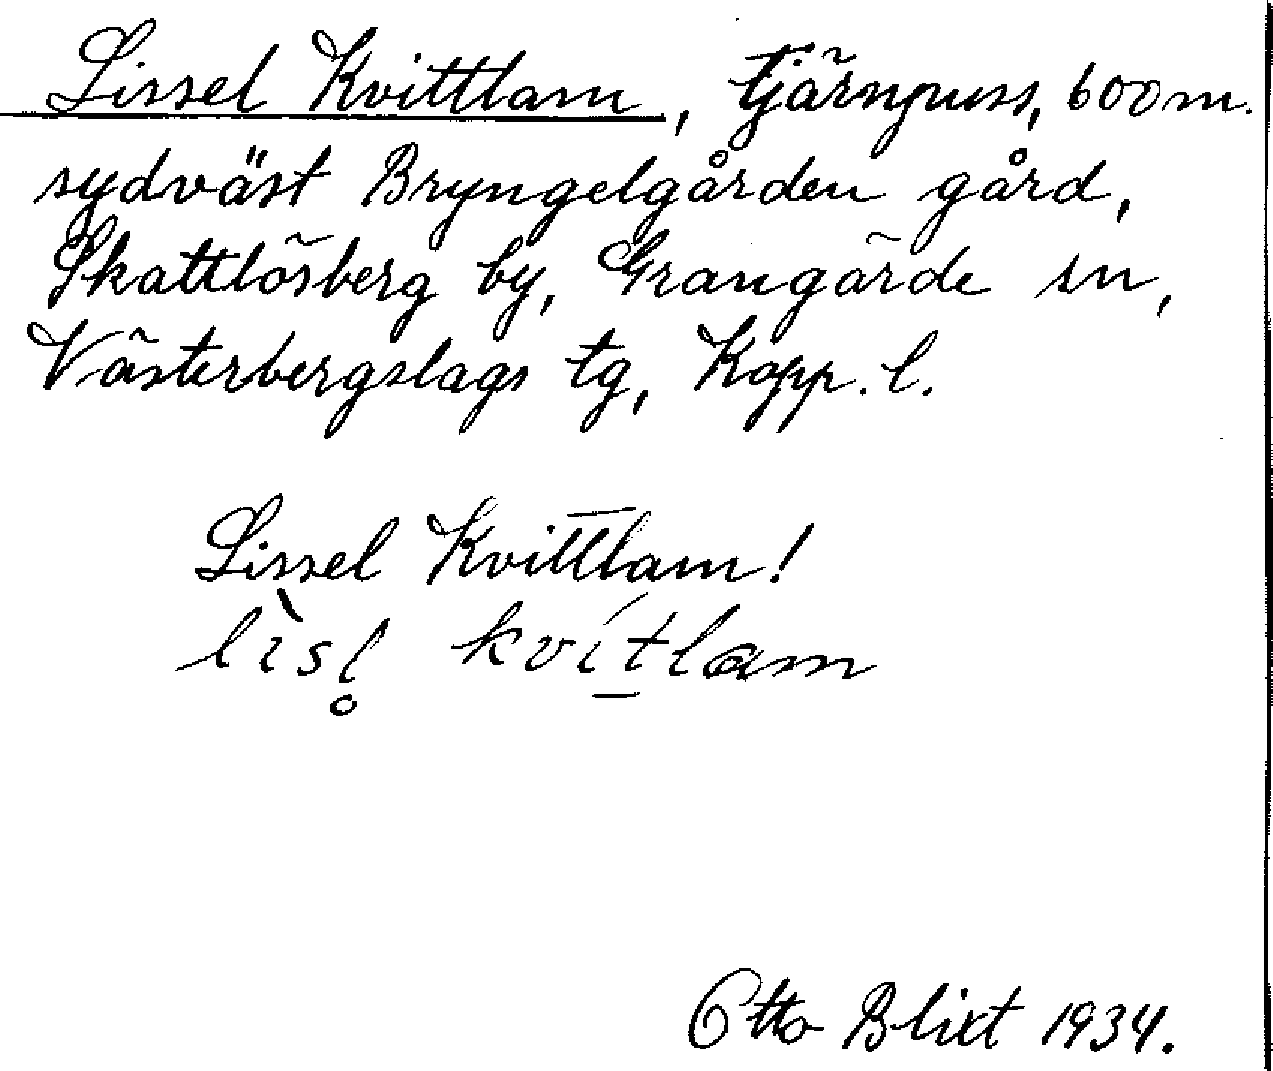 Lissel Kvittlam, tjärnpuss, 600 m.
sydväst Bryngelgården gård,
Skattlösberg by, Grangärde sn,
Västerbergslags tg, Kopp. l.
Lissel Kvittlam!
lìsl̥ kvít̲lam
Otto Blixt 1934.